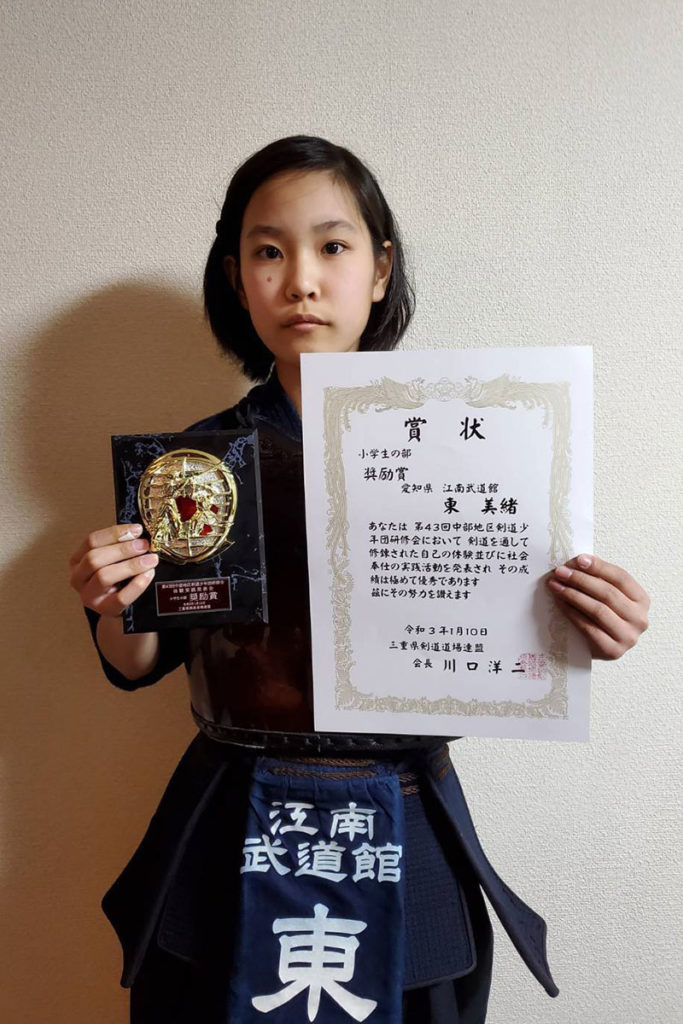 賞状
小学生の部
奨励賞
愛知県 江南武道館
東 美緒
あなたは 第43回中部地区剣道少
年団研修会において 剣道を通して
修錬された自己の体験並びに社会
奉仕の実践活動を発表され その成
績は極めて優秀であります
茲にその努力を讃えます
令和3年1月10日
三重県剣道道場連盟
会長 川口洋二
第43回中部地区剣道少年団研修会
体験実践発表会
小学生の部 奨励賞
令和3年1月10日
三重県剣道道場連盟
江南
武道館
東